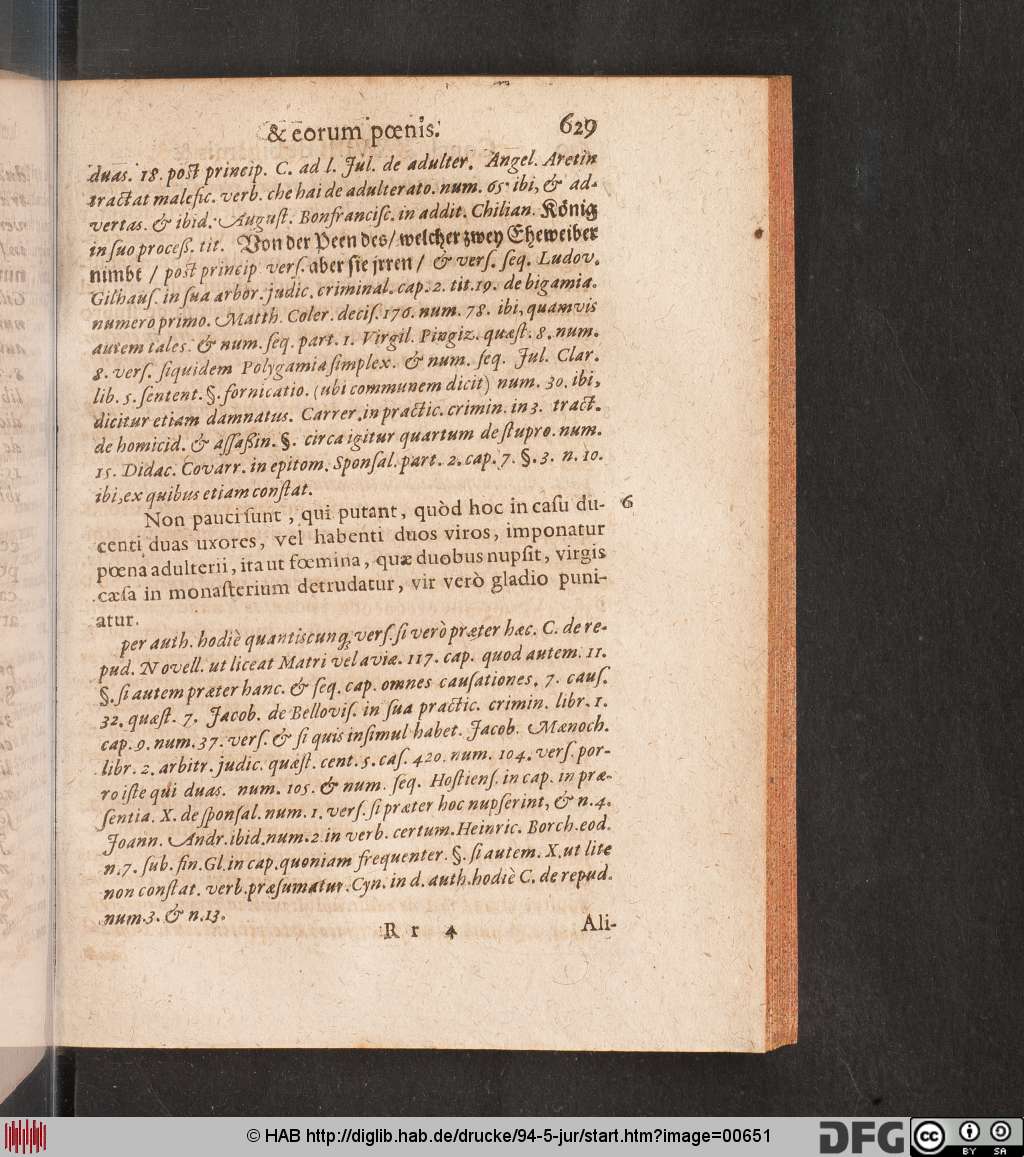 & eorum pœnis. 629
duas. 18. post princip. C. ad l. Jul. de adulter. Angel. Aretin
tractat malefic. verb. che hai de adulterato. num. 65. ibi, & ad-
vertas. & ibid. August. Bonfrancisc. in addit. Chilian. König
in suo proceß. tit. Von der Peen des / welcher zwey Eheweiber
nimbt / post princip vers. aber sie jrren / & vers. seq. Ludov.
Gilhaus. in sua arbor. judic. criminal. cap. 2. tit. 19. de bigamia.
numero primo. Matth. Coler. decis. 170. num. 78. ibi, quamvis
autem tales. & num. seq. part. 1. Virgil. Pingiz. quæst. 8. num.
8. vers. siquidem Polygamia simplex. & num. seq. Jul. Clar.
lib. 5. sentent. §. fornicatio. (ubi communem dicit) num. 30. ibi,
dicitur etiam damnatus. Carrer. in practic. crimin. in 3. tract.
de homicid. & assaßin. §. circa igitur quartum de stupro. num.
15. Didac. Covarr. in epitom. Sponsal. part. 2. cap. 7. §. 3. n. 10.
ibi, ex quibus etiam constat.
Non pauci sunt, qui putant, quòd hoc in casu du- 6
centi duas uxores, vel habenti duos viros, imponatur
pœna adulterii, ita ut fœmina, quæ duobus nupsit, virgis
cæsa in monasterium detrudatur, vir verò gladio puni-
atur.
per auth. hodiè quantiscunq; vers. si verò præter hæc. C. de re-
pud. Novell. ut liceat Matri vel aviæ. 117. cap. quod autem. 11.
§. si autem præter hanc. & seq. cap. omnes causationes. 7. caus.
32. quæst. 7. Jacob. de Bellovis. in sua practic. crimin. libr. 1.
cap. 9. num. 37. vers. & si quis insimul habet. Jacob. Mænoch.
libr. 2. arbitr. judic. quæst. cent. 5. cas. 420. num. 104. vers. por-
ro iste qui duas. num. 105. & num. seq. Hostiens. in cap. in præ-
sentia. X. de sponsal. num. 1. vers. si præter hoc nupserint, & n. 4.
Joann. Andr. ibid. num. 2 in verb. certum. Heinric. Borch. eod.
n. 7. sub. fin. Gl. in cap. quoniam frequenter. §. si autem. X. ut lite
non constat. verb. præsumatur. Cyn. in d. auth. hodiè C. de repud.
num. 3. & n. 13.
R r 4 Ali-
© HAB http://diglib.hab.de/drucke/94-5-jur/start.htm?image=00651
DFG
cc BY SA